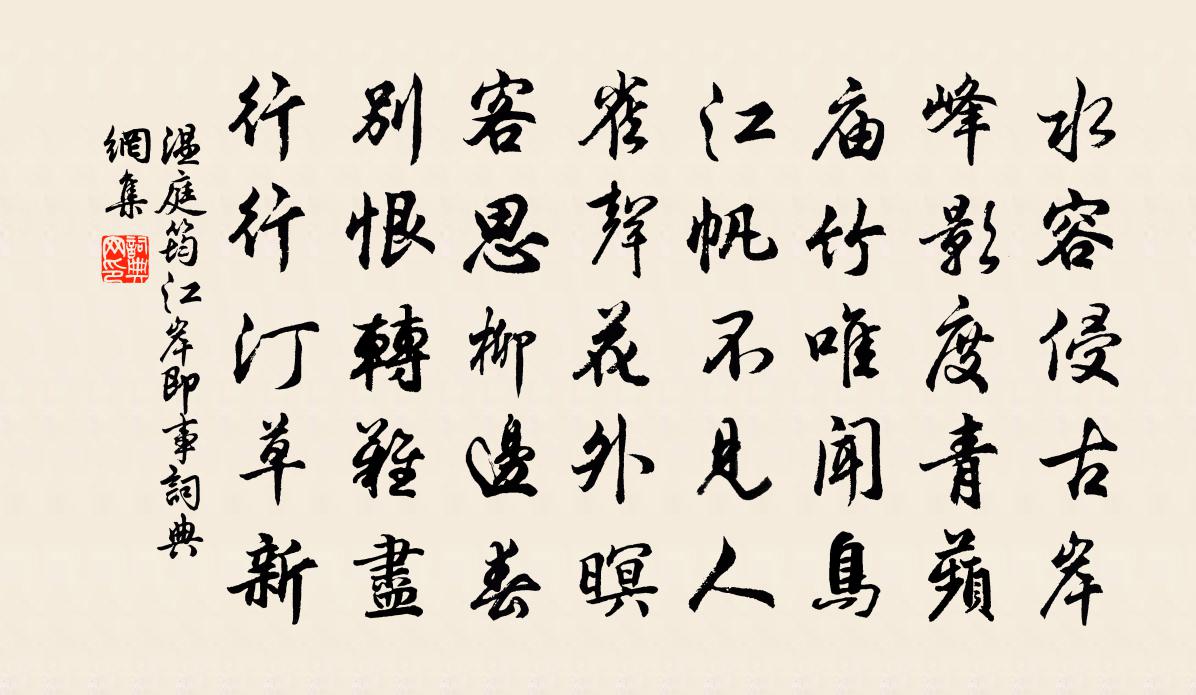 水容侵古岸
峰影度青蘋
庙竹唯聞鳥
江帆不見人
雀聲花外暝
客思柳邊春
別恨轉難盡
行行汀草新
温庭筠江岸即事詞典
網集
詞典
网印